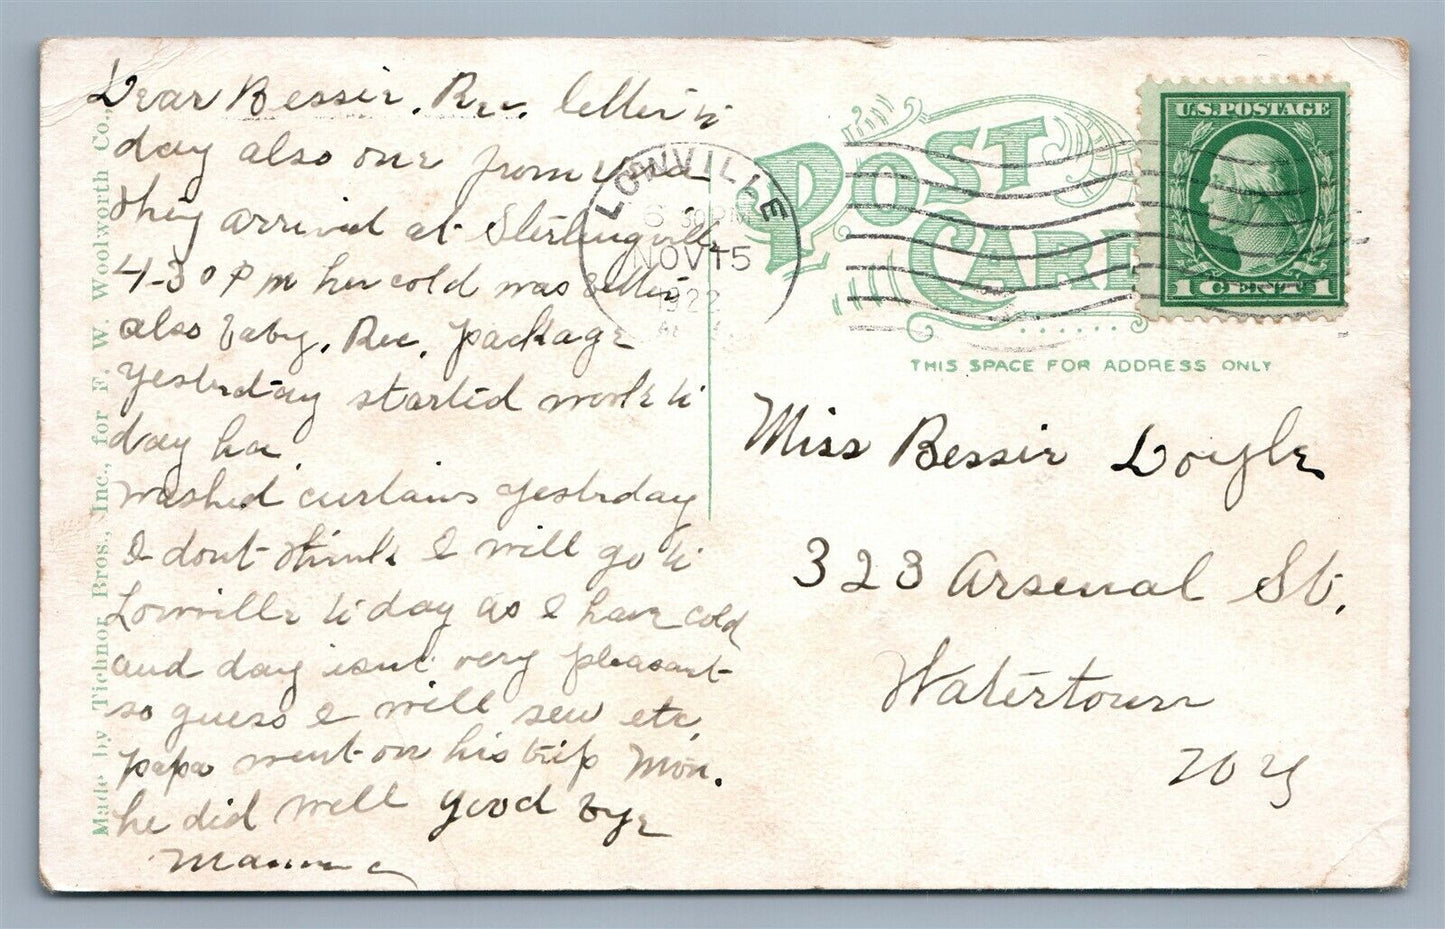 Dear Bessie, Rec. letter to
day also one from
they arrived at Sterlingville
4-30 P m her cold was better
also baby. Rec. package
yesterday started work to
day ha
washed curtains yesterday
I dont think I will go to
Lowville to day as I have cold
and day isnt very pleasant
so guess I will sew etc,
papa went on his trip Mon.
he did well good bye
Mamma
Made by Tichnor Bros., Inc., for F. W. Woolworth Co.,
LOWVILLE
6 30 PM
NOV 15
1922
POST CARD
U.S. POSTAGE
1 CENT 1
THIS SPACE FOR ADDRESS ONLY
Miss Bessie Doyle
323 Arsenal St.
Watertown
N. Y.